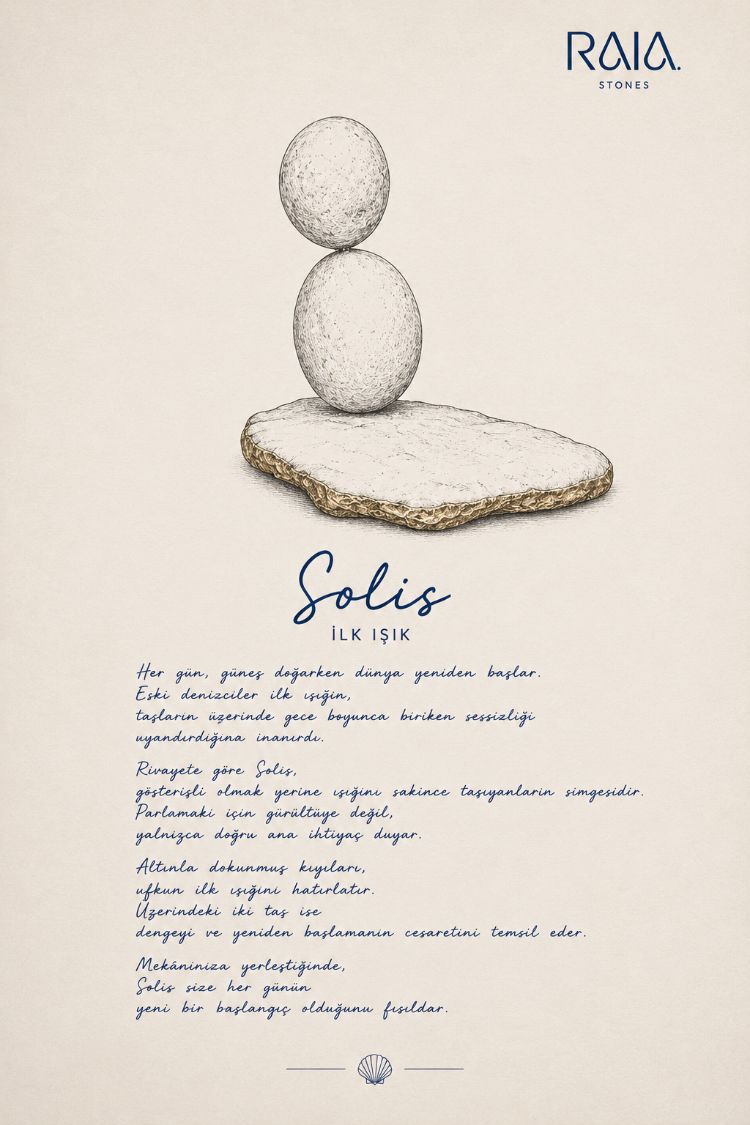 RAIA.
STONES
Solis
İLK IŞIK
Her gün, güneş doğarken dünya yeniden başlar.
Eski denizciler ilk ışığın,
taşların üzerinde gece boyunca biriken sessizliği
uyandırdığına inanırdı.
Rivayete göre Solis,
gösterişli olmak yerine ışığını sakince taşıyanların simgesidir.
Parlamaki için gürültüye değil,
yalnızca doğru ana ihtiyaç duyar.
Altınla dokunmuş kıyıları,
ufkun ilk ışığını hatırlatır.
Üzerindeki iki taş ise
dengeyi ve yeniden başlamanın cesaretini temsil eder.
Mekânınıza yerleştiğinde,
Solis size her günün
yeni bir başlangıç olduğunu fısıldar.